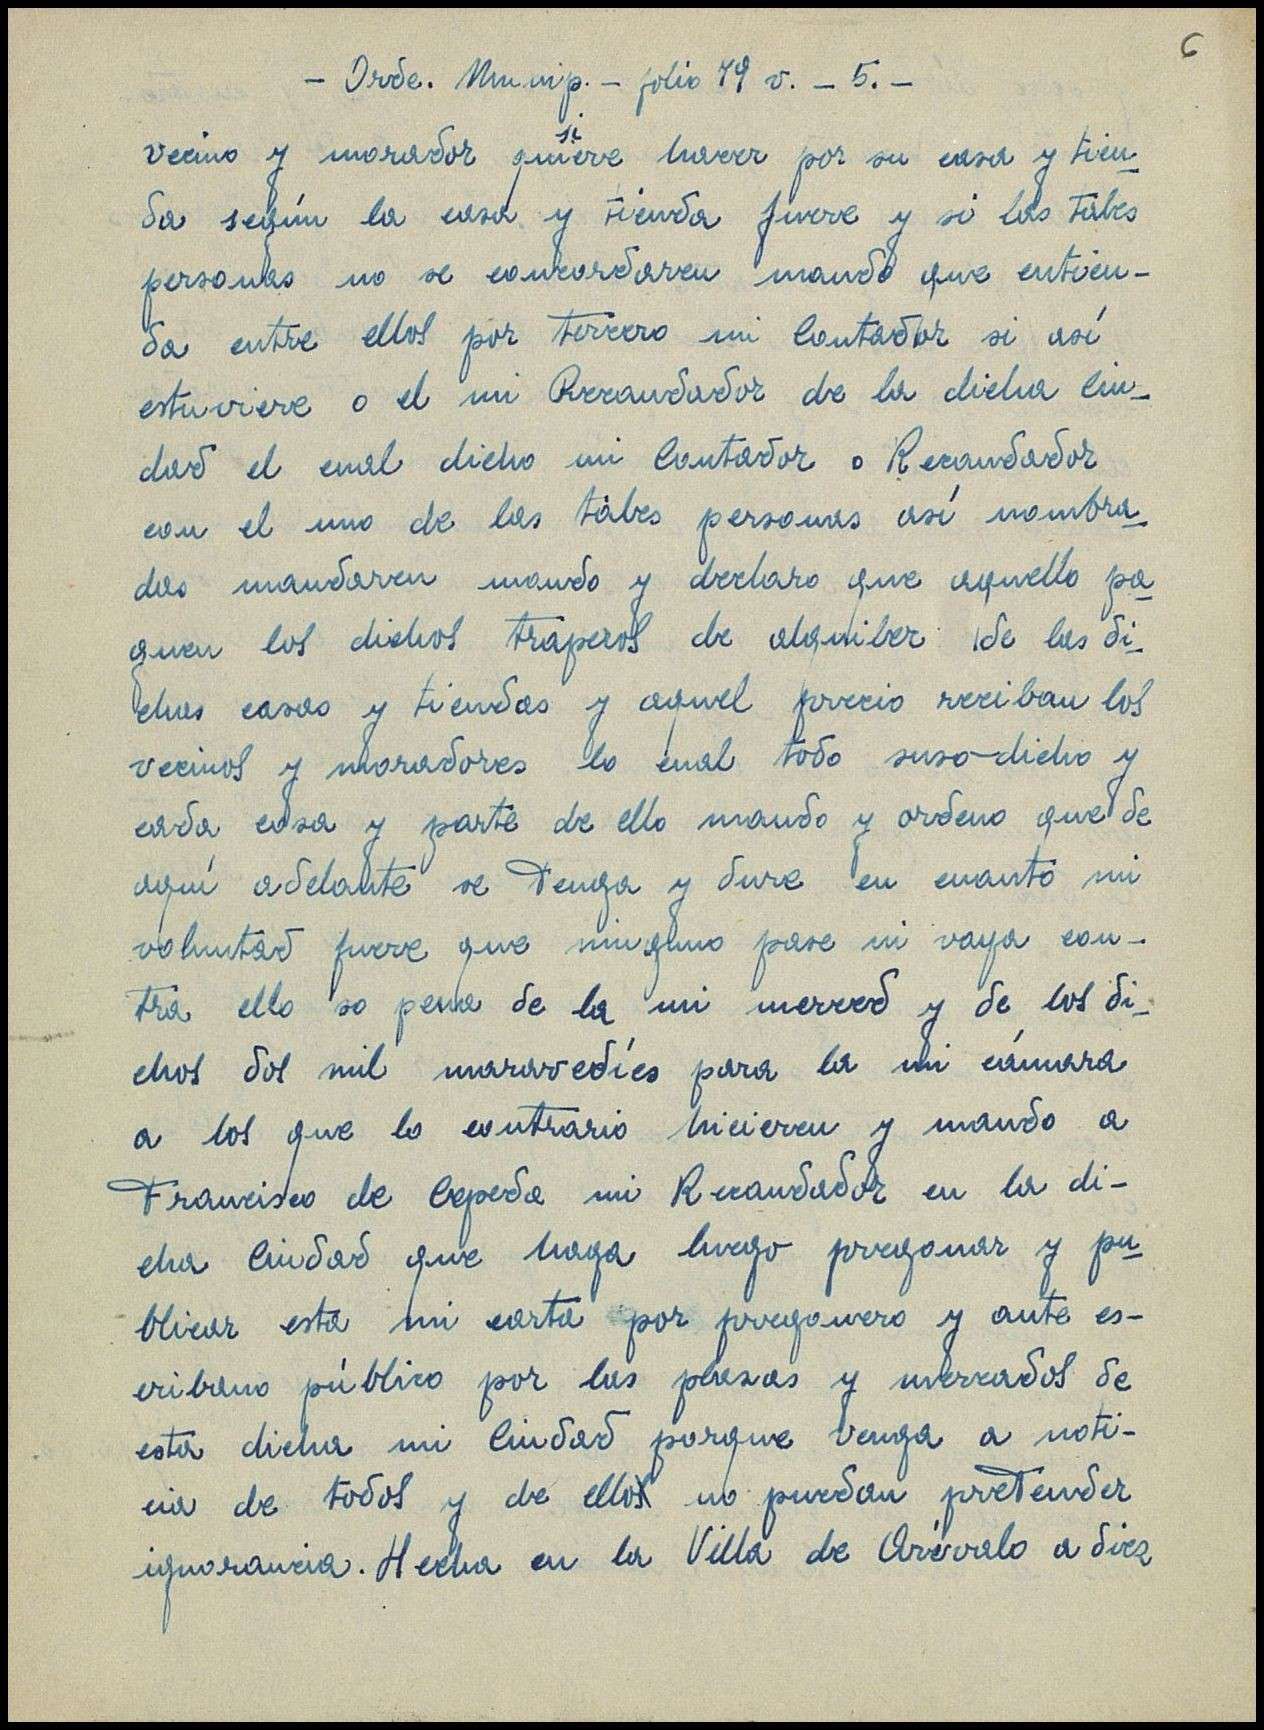 6
- Orde. Municip. - folio 79 v. - 5. -
vecino y morador quisiere hacer por su casa y tien-
da según la casa y tienda fuere y si las tales
personas no se concordaren mando que entien-
da entre ellos por tercero mi Contador si así
estuviere o el mi Recaudador de la dicha Ciu-
dad el cual dicho mi Contador o Recaudador
con el uno de las tales personas así nombra-
das mandaren mando y declaro que aquello pa-
guen los dichos traperos de alquiler de las di-
chas casas y tiendas y aquel precio reciban los
vecinos y moradores lo cual todo suso-dicho y
cada cosa y parte de ello mando y ordeno que de
aquí adelante se tenga y dure en cuanto mi
voluntad fuere que ninguno pase ni vaya con-
tra ello so pena de la mi merced y de los di-
chos dos mil maravedíes para la mi cámara
a los que lo contrario hicieren y mando a
Francisco de Cepeda mi Recaudador en la di-
cha Ciudad que haga luego pregonar y pu-
blicar esta mi carta por pregonero y ante es-
cribano público por las plazas y mercados de
esta dicha mi Ciudad porque venga a noti-
cia de todos y de ello no puedan pretender
ignorancia. Hecha en la Villa de Arévalo a diez